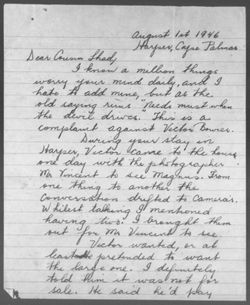 August 1st 1946
Harper, Cape Palmas
Dear Cousin Shady
I know a million things
worry your mind daily, and I
hate to add mine, but as the
old saying runs "Needs must when
the devil drives. This is a
complaint against Victor
During your stay in
Harper, Victor came to the house
one day with the photographer
Mr Vincent to see Magnus. From
one thing to another the
conversation drifted to Cameras.
Whilst talking I mentioned
having two. I brought them
out for Mr Vincent to see.
Victor wanted, or at
least pretended to want
the large one. I definitely
told him it was not for
sale. He said he'd pay